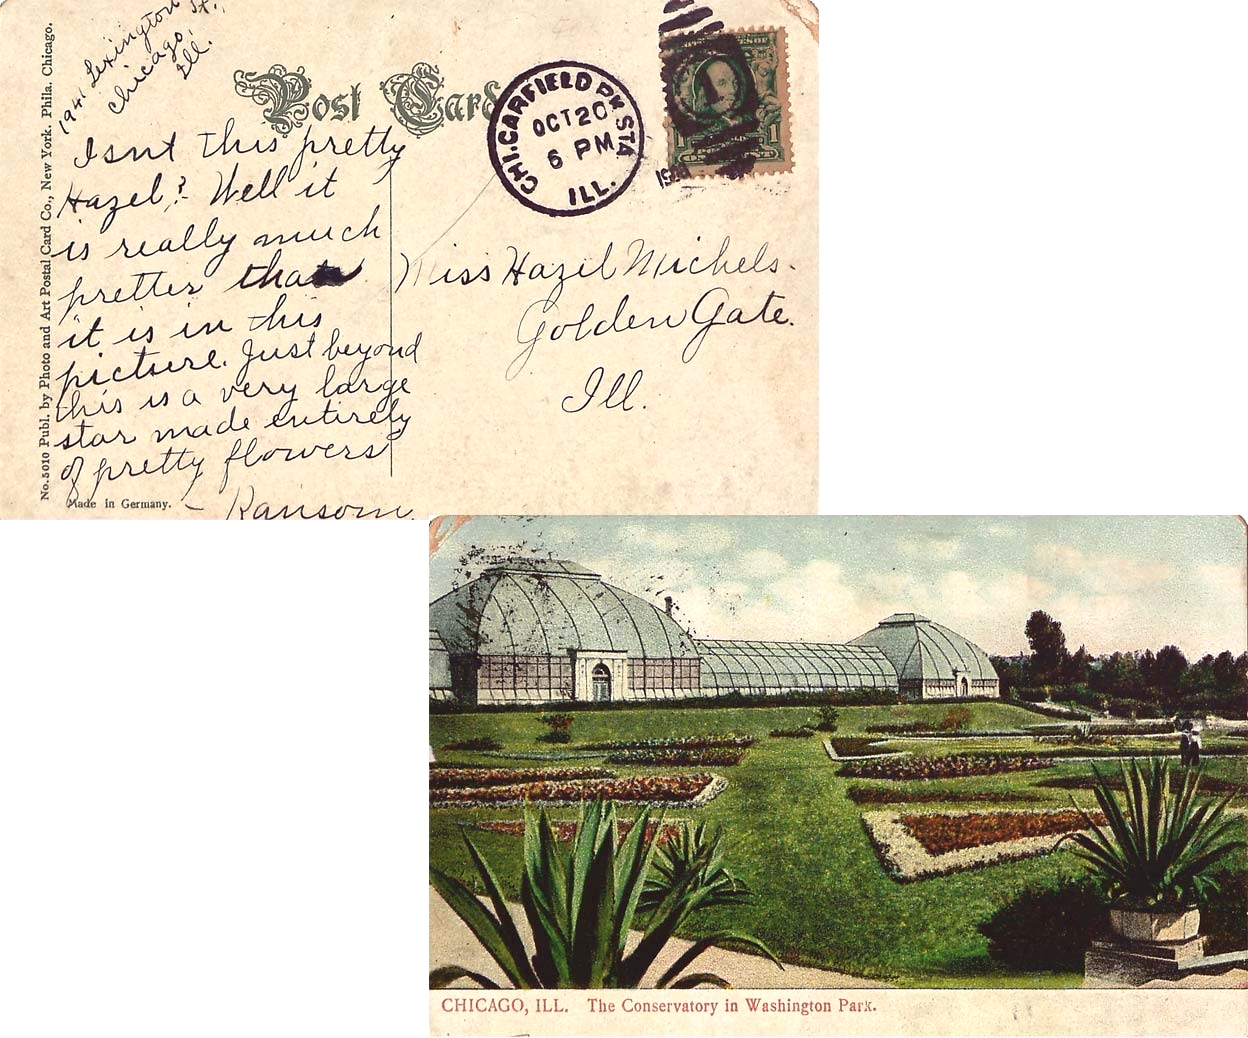 1941 Lexington St.,
Chicago,
Ill.
No. 5010 Publ. by Photo and Art Postal Card Co., New York. Phila. Chicago.
Post Card
CHI. GARFIELD PK STA.
OCT 20
6 PM
ILL.
1
1
Isnt this pretty
Hazel? Well it
is really much
pretter than
it is in this
picture. Just beyond
this is a very large
star made entirely
of pretty flowers
Ransom.
Made in Germany.
Miss Hazel Michels.
Golden Gate.
Ill.
CHICAGO, ILL. The Conservatory in Washington Park.